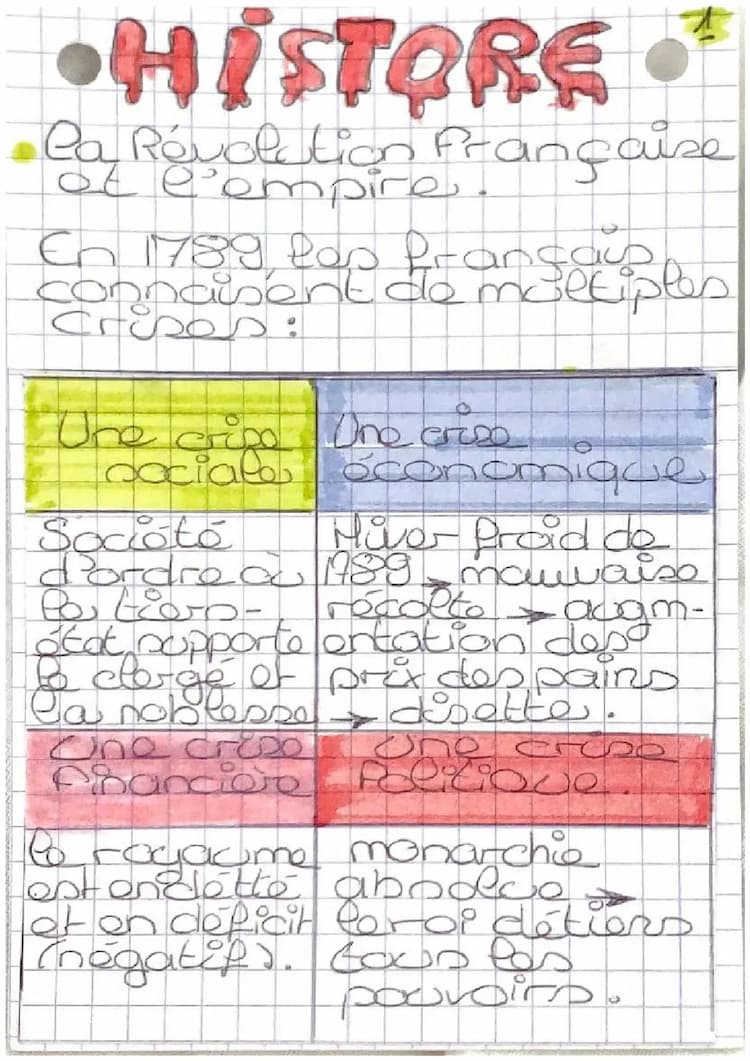 HiSTORE
1
La Révolution Française
et l'empire.
En 1789 les français
connaisent de multiples
crises :
Une crise
sociale
Une crise
économique
Société
d'ordre où
les tiers-
état supporte
le clergé et
la noblesse
Hiver froid de
1789 → mauvaise
récolte → augm-
entation des
prix des pains
→ disette.
Une crise
financière
Une crise
Politique.
le royaume
est endétté
et en déficit
(négatif).
monarchie
absolue →
le roi détiens
tous les
pouvoirs.